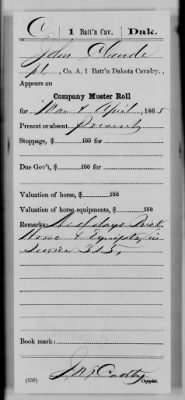 C | 1 Batt'n Cav. | Dak.
John Claude
Pt., Co. A, 1 Batt'n Dakota Cavalry.
Appears on
Company Muster Roll
for Mar & April, 1865
Present or absent Present
Stoppage, $ 100 for
Due Gov't, $ 100 for
Valuation of horse, $ 100
Valuation of horse equipments, $ 100
Remarks:
Horse & Equipts, in
Book mark:
(358)
Copyist.